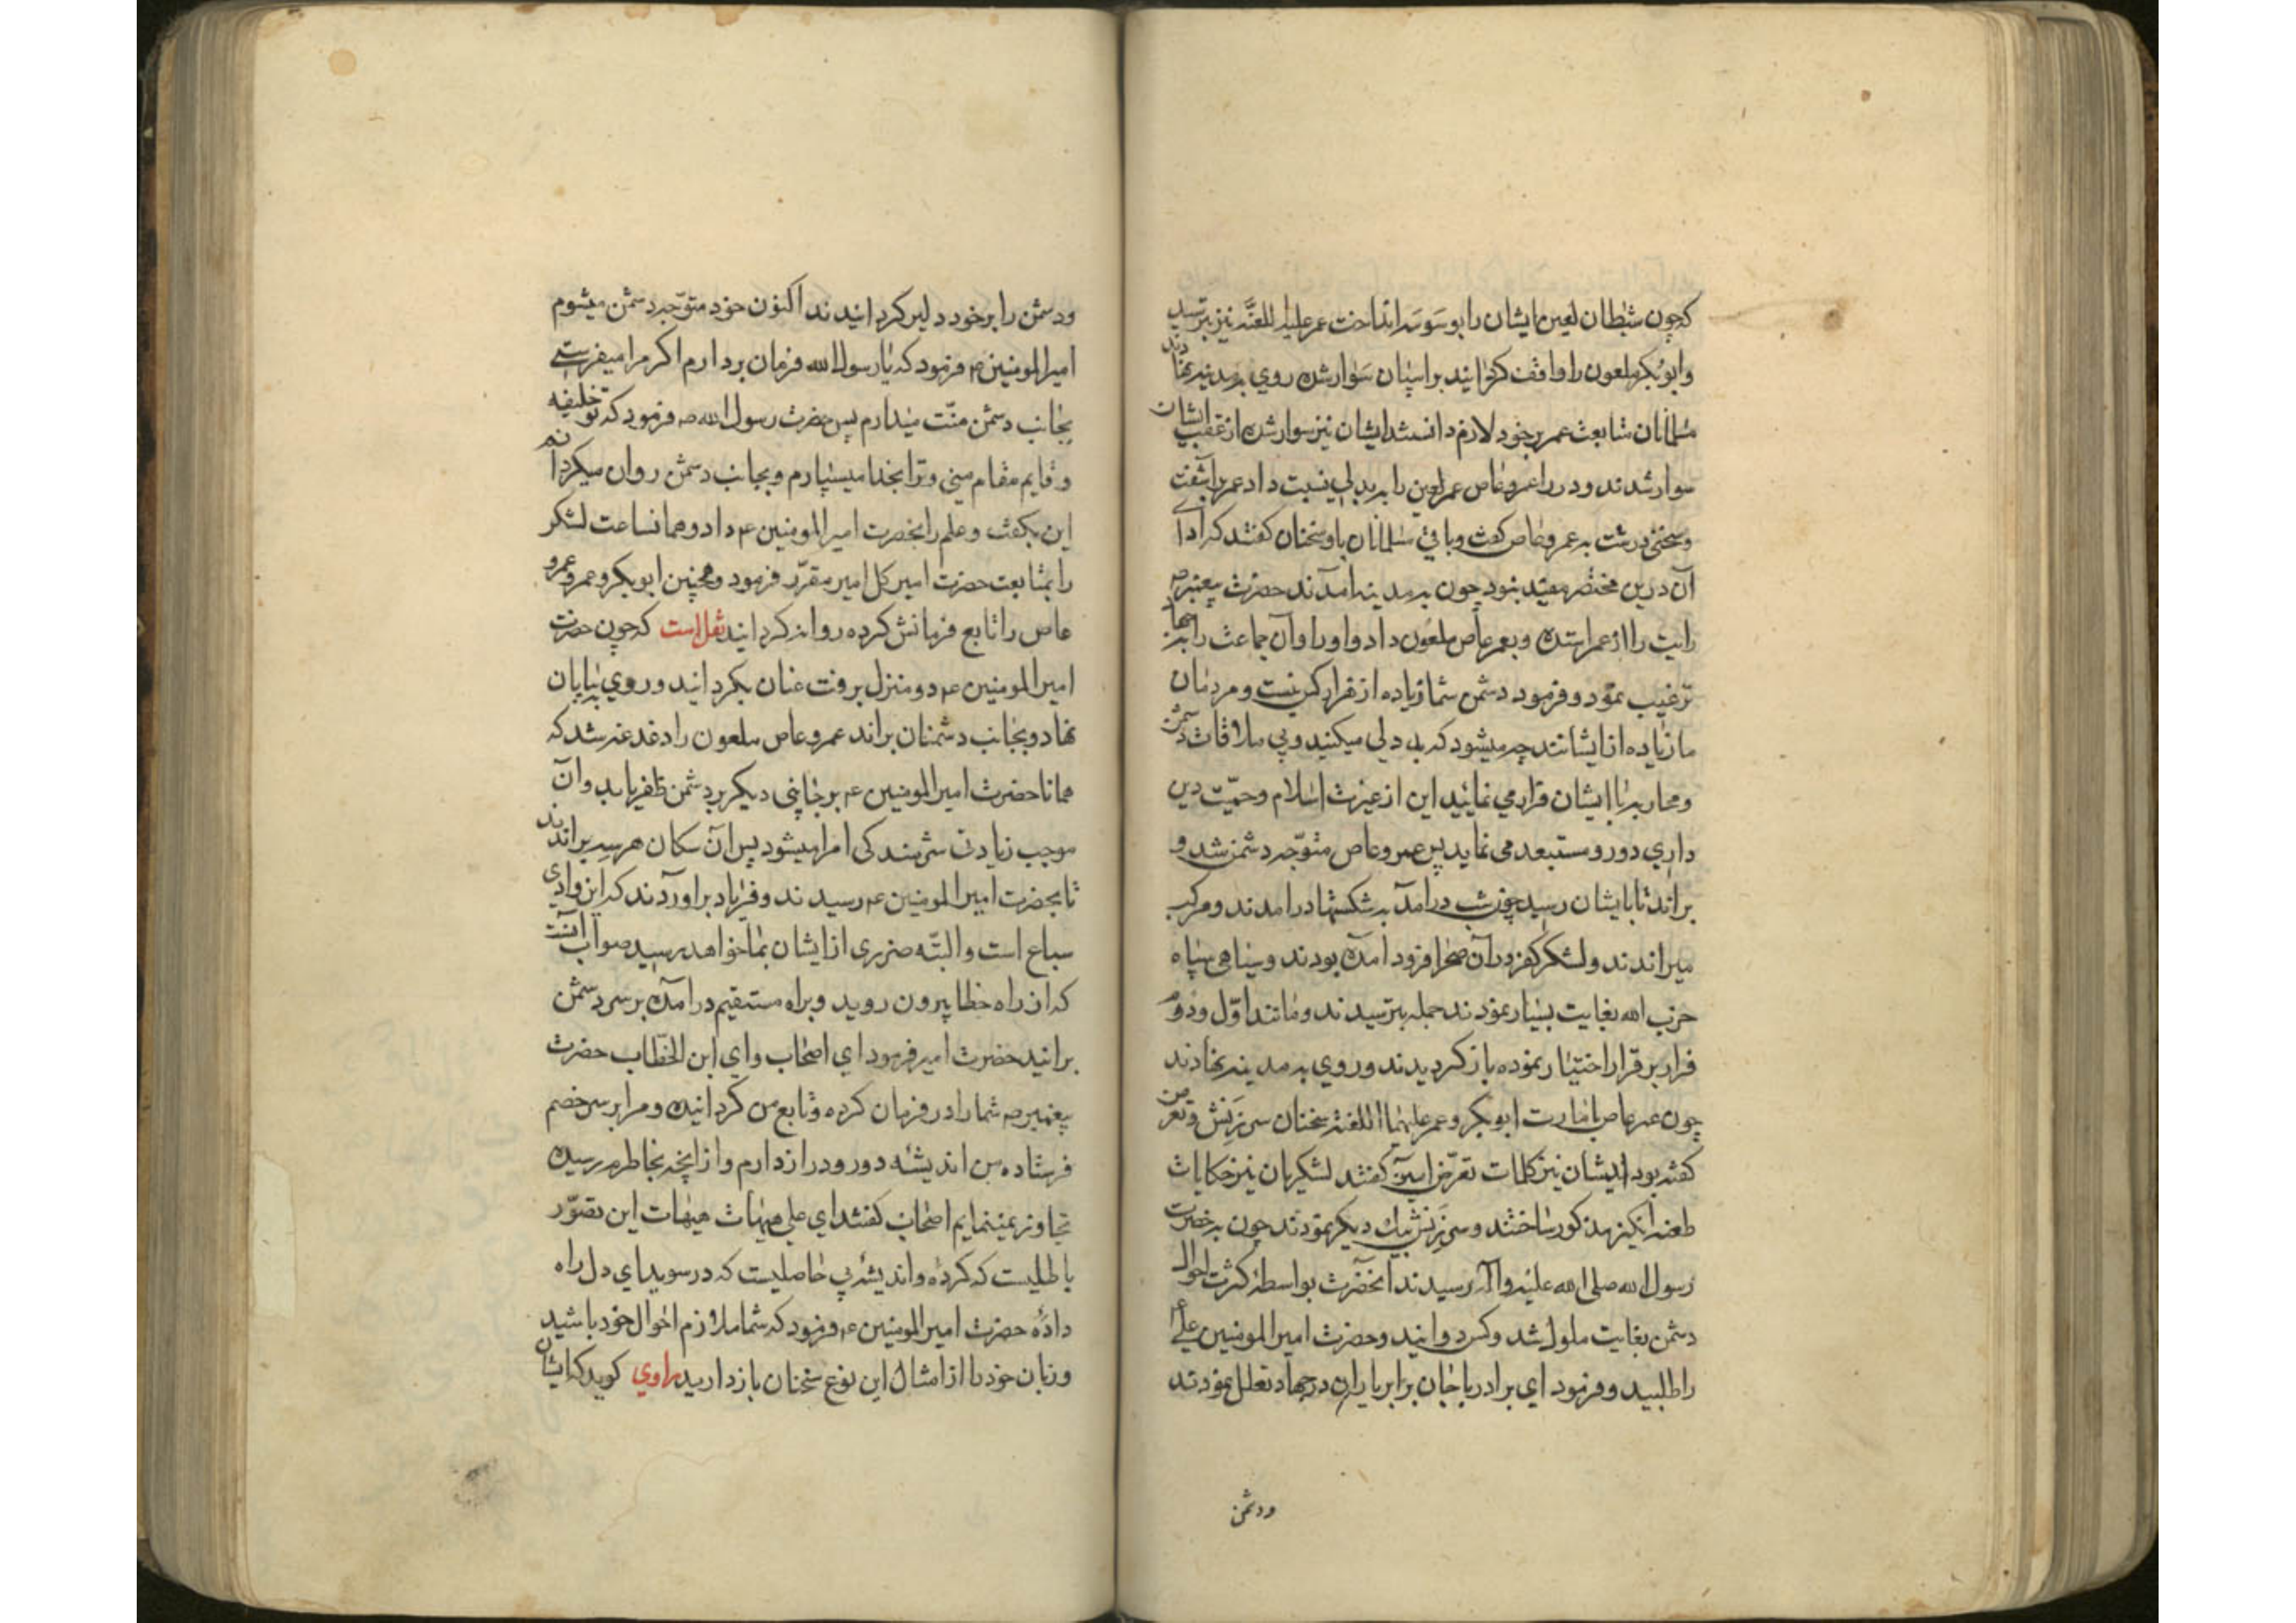 که چون شیطان لعین ایشان را بوسوسه انداخت عمر علیه اللعنه نیز بترسید
وابوبکر ملعون را واقف کردانید براسپان سوار شده روي بمدینه نهادند
مسلمانان متابعت عمر برخود لازم دانسته ایشان نیز سوار شده از عقب ایشان
سوار شدند ودر راه عمروعاص عمر لعین را به بد دلی نسبت داد عمر برآشفت
وسخنی درشت به عمروعاص کفت وباقی مسلمانان باو سخنان کفتند که ادای
آن درین مختصر مفید نبود چون به مدینه امدند حضرت پیغمبر ص
رایت را از عمر استده وبعمرعاص ملعون داد واو را وآن جماعت را بجهاد
ترغیب نمود وفرمود دشمن شما زیاده از نفرات نیست ومردمان
ما زیاده از ایشانند چه میشود که بد دلی میکنید وبی ملاقات دشمن
ومحاربه با ایشان فرار می نمائید این از غیرت اسلام وحمیّت دین
داري دور ومستبعد می نماید پس عمروعاص متوجّه دشمن شد و
براند تا بایشان رسید چون شب درامد به شکستها درامدند ومرکب
میراندند ولشکر کفر درآن صحرا فرود آمده بودند وسیاهی سپاه
حزب الله بغایت بسیار نمودند جمله بترسیدند ومانند اوّل ودوم
فرار برقرار اختیار نموده باز کردیدند وروي به مدینه نهادند
چون عمرعاص بامارت ابوبکر وعمر علیهما اللعنة سخنان سرزنش وتعرض
کفته بود ایشان نیز کلمات تعرّض امیز کفتند لشکریان نیز حکایات
طعنه انکیز مذکور ساختند وسرزنش یك دیکر نمودند چون به حضرت
رسول الله صلی الله علیه وآله رسیدند آنحضرت بواسطهٔ کثرت احوال
دشمن بغایت ملول شد وحضرت امیرالمومنین علی ع
را طلبید وفرمود ای برادر با جان برابر یاران درجهاد تعلل نمودند
ودشمن
ودشمن را برخود دلیر کردانیدند اکنون خود متوّجه دشمن میشوم
امیرالمومنین ع فرمود که یا رسول الله فرمان بردارم اکر مرا میفرستی
بجانب دشمن منّت میدارم پس حضرت رسول الله ص فرمود که تو خلیفه
وقایم مقام منی وترا بخدا میسپارم وبجانب دشمن روان میکردانم
این بکفت وعلم را بحضرت امیرالمومنین ع داد وهمانساعت لشکر
را بمتابعت حضرت امیر کل امیر مقرّر فرمود وهمچنین ابوبکر وعمر وعمرو
عاص را تابع فرمانش کرده روانه کردانید نقل است که چون حضرت
امیرالمومنین ع دو منزل برفت عنان بکردانید وروي به بیابان
نهاد وبجانب دشمنان براند عمروعاص ملعون را دغدغه شد که
همانا حضرت امیرالمومنین ع برجانبی دیکر بردشمن ظفر یابد وآن
موجب زیادتی شرمندکی امرا میشود پس آن سکان هر سه براندند
تا بحضرت امیرالمومنین ع رسیدند وفریاد براوردند که این وادی
سباع است والبتّه ضرری از ایشان بما خواهد رسید صواب آنست
که از راه خطا بیرون روید وبراه مستقیم درآمده برسر دشمن
برانید حضرت امیر فرمود اي اصحاب واي ابن الخطّاب حضرت
پیغمبر ص شما را در فرمان کرده وتابع من کردانیده ومرا برسر خصم
فرستاده من اندیشهٔ دور ودراز دارم واز آنچه بخاطرم رسیده
تجاوز نمینمایم اصحاب کفتند اي علی هیهات هیهات این تصوّر
باطلیست که کردهٔ واندیشهٔ بی حاصلیست که در سویداي دل راه
دادهٔ حضرت امیرالمومنین ع فرمود که شما ملازم احوال خود باشید
وزبان خود را از امثال این نوع سخنان باز دارید راوي کوید که ایشان